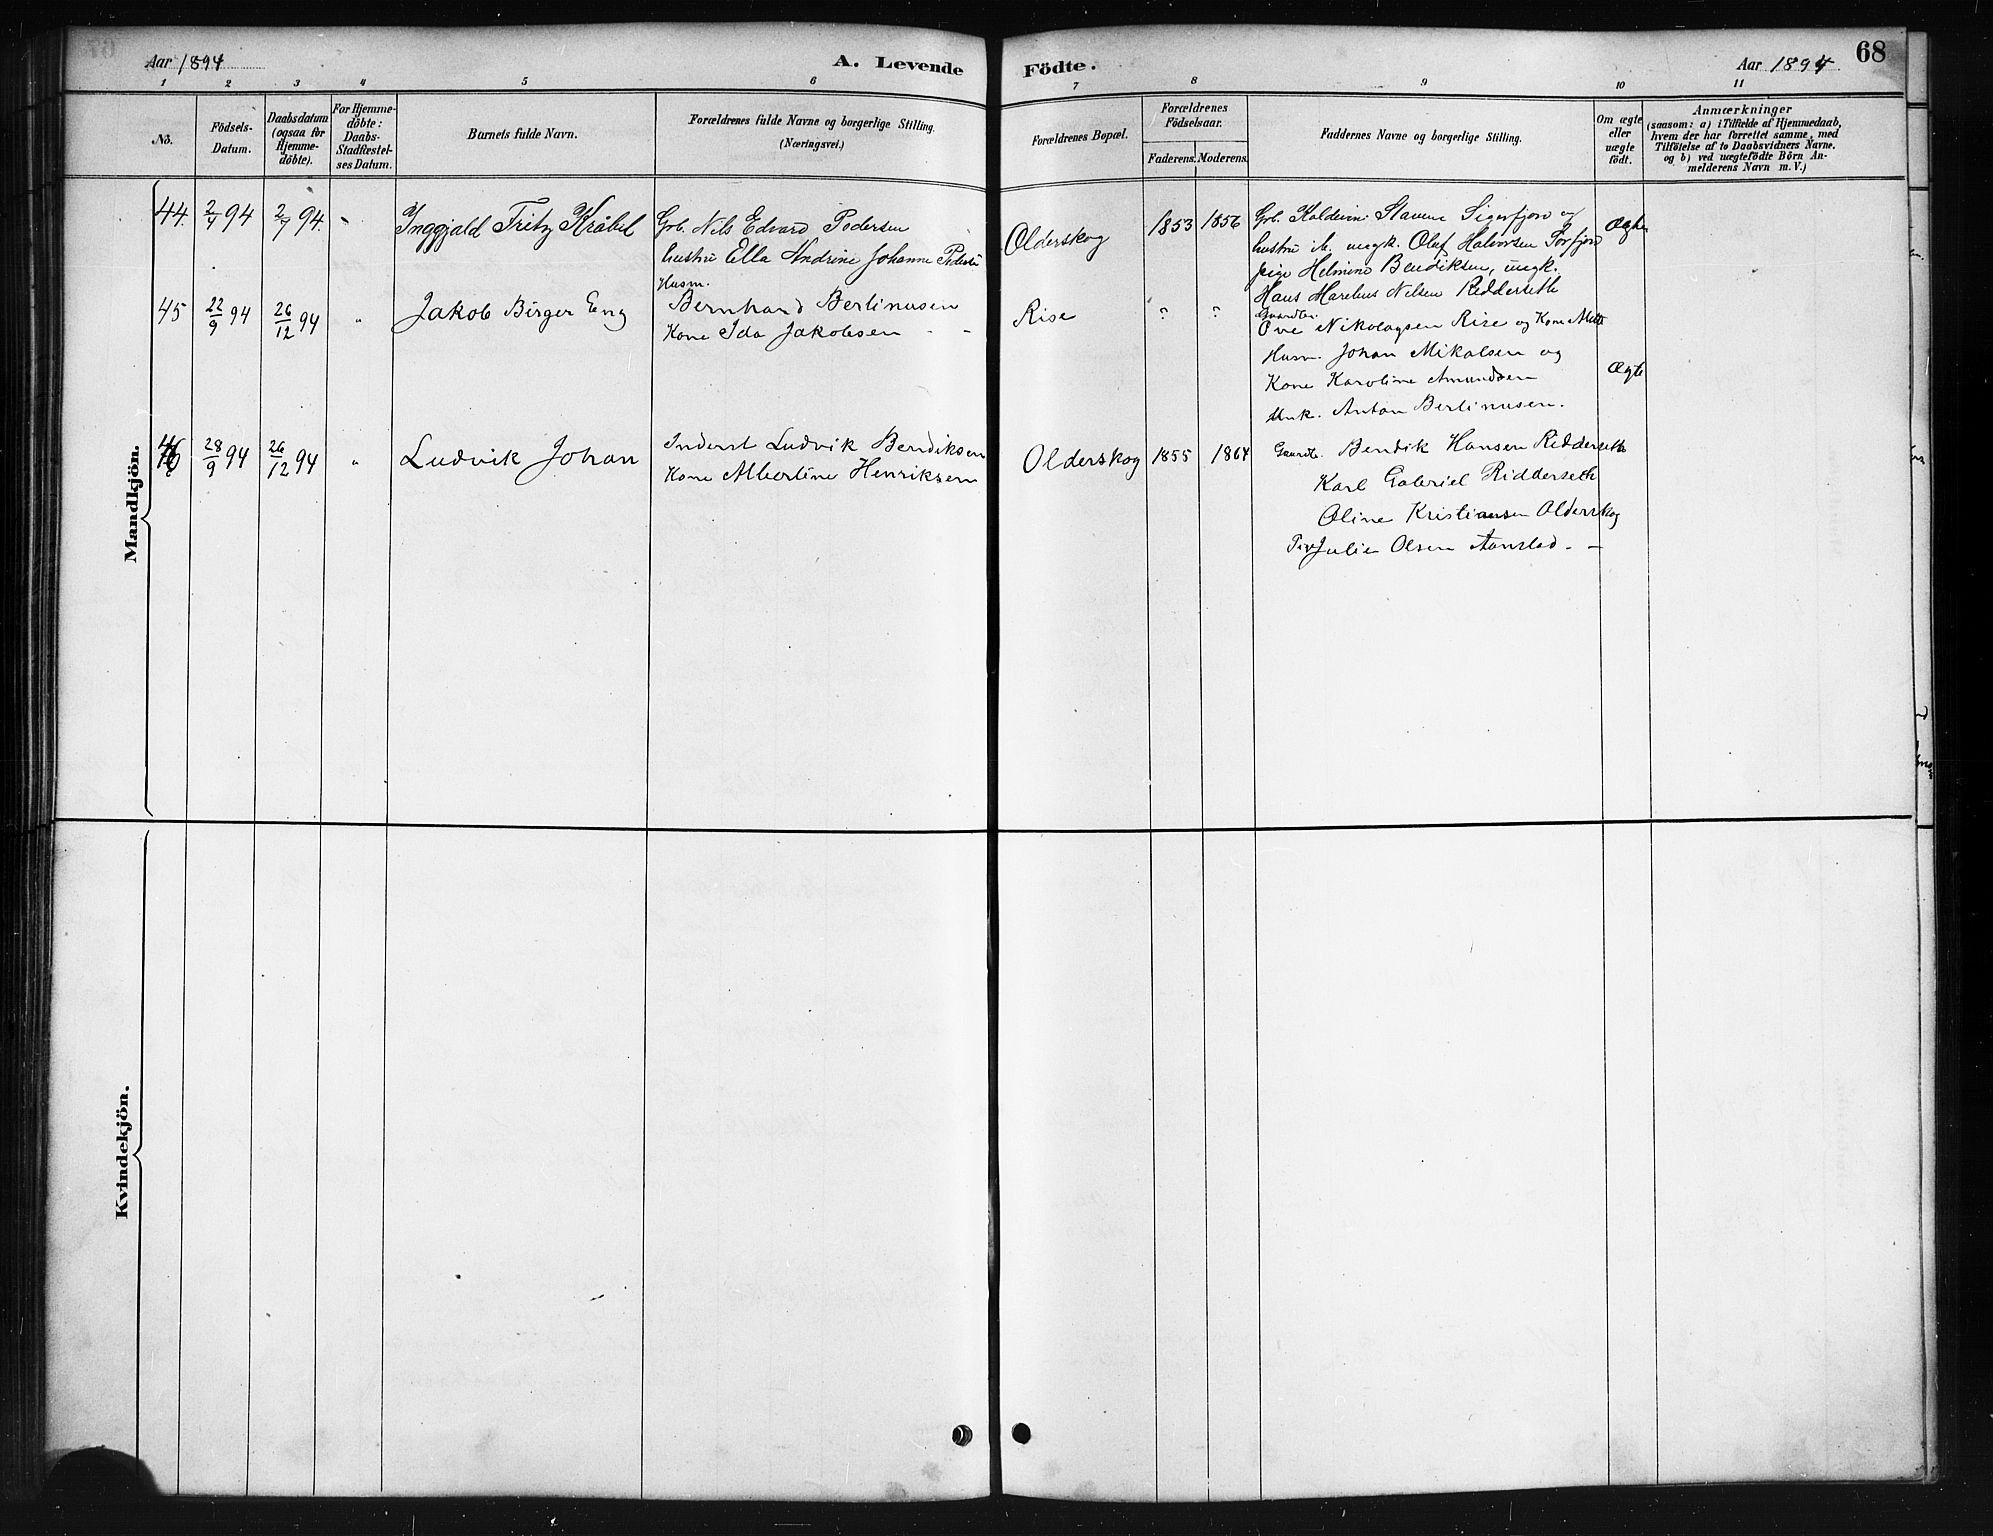 Aar 1894
A. Levende
Födte.
Aar 1894
68
1 2 3 4 5 6 7 8 9 10 11
No.
Födsels-
Datum.
Daabsdatum
(ogsaa for
Hjemme-
döbte).
For Hjemme-
döbte:
Daabs-
Stadfæstel-
ses Datum.
Barnets fulde Navn.
Forældrenes fulde Navne og borgerlige Stilling.
(Næringsvei.)
Forældrenes Bopæl.
Forældrenes
Födselsaar.
Faderens. Moderens.
Faddernes Navne og borgerlige Stilling.
Om ægte
eller
uægte
födt.
Anmærkninger
(saasom: a) i Tilfælde af Hjemmedaab,
hvem der har forrettet samme, med
Tilföielse af to Daabsvidners Navne,
og b) ved uægtefödte Börn An-
melderens Navn m. V.)
Mandkjön.
44. 2/4 94 2/7 94. - Inggjald Fritz Kråbel
Grb. Nils Edvard Pedersen
hustru Ella Andrine Johanne
Olderskog 1853 1856
Grb. Slavene Sigerfjord og
hustru ungk. Oluf Halvorsen
pige Helmine Bendiksen, ungk.
Hans Nilsen Ridderseth
Ægte
45 22/9 94 26/12 94 " Jakob Birger Eng
Husm.
Bernhard Berlinusen
Kone Ida Jakobsen - -
Rise ? ?
Ove Nikolaysen Rise og Kone Mette
Husm. Johan Mikalsen og
Kone Karoline Amundsen
Unk. Anton Berlinusen.
Ægte
46 28/9 94 26/12 94 " Ludvik Johan
Inderst Ludvik Bendiksen
Kone Albertine Henriksen
Olderskog 1855 1864
Gaardb. Bendik Hansen Ridderseth
Karl Gabriel Ridderseth
Oline Kristiansen Olderskog
Pige Julie Olsen Aanstad. -
Kvindekjön.